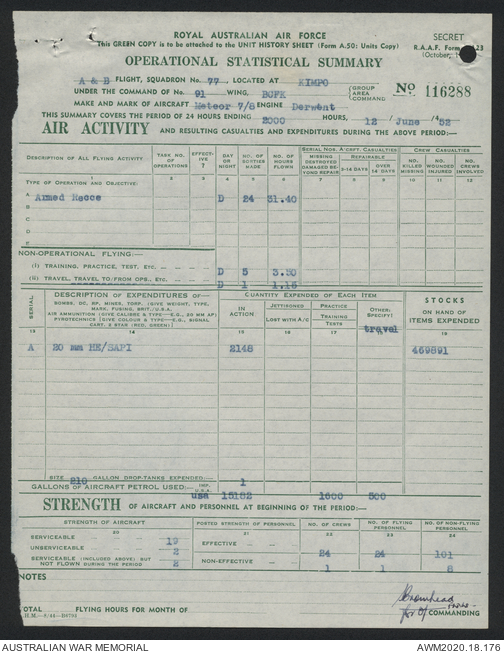 ROYAL AUSTRALIAN AIR FORCE
SECRET
This GREEN COPY is to be attached to the UNIT HISTORY SHEET (Form A.50: Units Copy)
R.A.A.F. Form 23
(October, 1
OPERATIONAL STATISTICAL SUMMARY
A & B FLIGHT, SQUADRON No. 77, LOCATED AT KIMPO
UNDER THE COMMAND OF No. 91 WING, BCFK (GROUP AREA COMMAND
No 116288
MAKE AND MARK OF AIRCRAFT Meteor 7/8 ENGINE Derwent
THIS SUMMARY COVERS THE PERIOD OF 24 HOURS ENDING 2000 HOURS, 12 / June /'52
AIR ACTIVITY AND RESULTING CASUALTIES AND EXPENDITURES DURING THE ABOVE PERIOD:—
DESCRIPTION OF ALL FLYING ACTIVITY
TASK NO. OF OPERATIONS
EFFECTIVE ?
DAY OR NIGHT
NO. OF SORTIES MADE
NO. OF HOURS FLOWN
SERIAL NOS. A'CRFT. CASUALTIES
MISSING DESTROYED DAMAGED BEYOND REPAIR
REPAIRABLE
2-14 DAYS
OVER 14 DAYS
CREW CASUALTIES
NO. KILLED MISSING
NO. WOUNDED INJURED
NO. CREWS INVOLVED
1 2 3 4 5 6 7 8 9 10 11 12
TYPE OF OPERATION AND OBJECTIVE:
A Armed Recce D 24 31.40
B
C
D
E
NON-OPERATIONAL FLYING:—
(I) TRAINING, PRACTICE, TEST, ETC. D 5 3.50
(II) TRAVEL, TRAVEL TO/FROM OPS., ETC. D 1 1.15
SERIAL
DESCRIPTION OF EXPENDITURES OF—
BOMBS, DC, RP, MINES, TORP. (GIVE WEIGHT, TYPE, MARK, FUSING, BRIT./U.S.A.
AIR AMMUNITION (GIVE CALIBRE & TYPE—E.G., 20 MM AP)
PYROTECHNICS (GIVE COLOUR & TYPE—E.G., SIGNAL CART. 2 STAR (RED, GREEN))
QUANTITY EXPENDED OF EACH ITEM
IN ACTION
JETTISONED
LOST WITH A/C
PRACTICE
TRAINING
TESTS
OTHER: SPECIFY!
travel
STOCKS
ON HAND OF ITEMS EXPENDED
13 14 15 16 17 18 19
A 20 mm HE/SAPI 2148 469891
SIZE 210 GALLON DROP-TANKS EXPENDED:— 1
GALLONS OF AIRCRAFT PETROL USED:— IMP. U.S.A. usa 15182 1600 500
STRENGTH OF AIRCRAFT AND PERSONNEL AT BEGINNING OF THE PERIOD:—
STRENGTH OF AIRCRAFT
POSTED STRENGTH OF PERSONNEL
NO. OF CREWS
NO. OF FLYING PERSONNEL
NO. OF NON-FLYING PERSONNEL
20 21 22 23 24
SERVICEABLE 19
UNSERVICEABLE 2
SERVICEABLE (INCLUDED ABOVE) BUT NOT FLOWN DURING THE PERIOD 2
EFFECTIVE 24 24 101
NON-EFFECTIVE 1 1 8
NOTES
OTAL FLYING HOURS FOR MONTH OF
for O/ COMMANDING
AUSTRALIAN WAR MEMORIAL
AWM2020.18.176